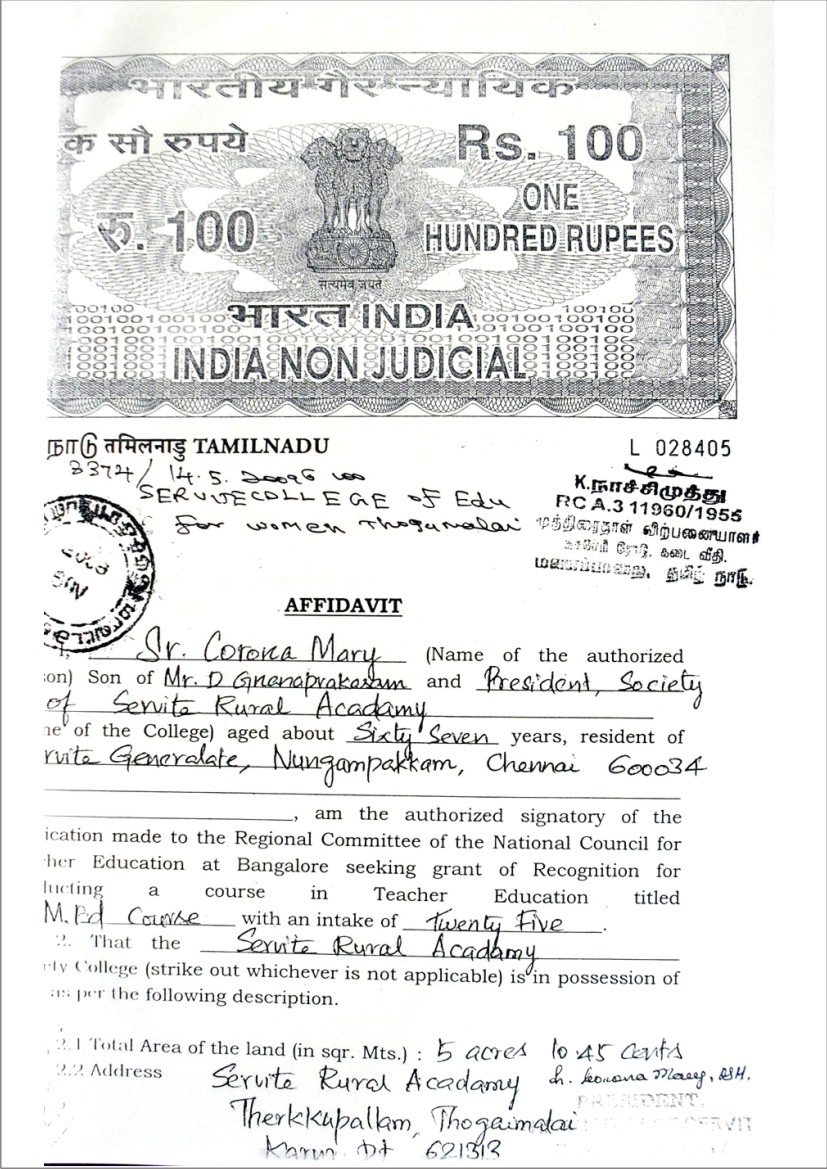 भारतीय गैर न्यायिक
क सौ रुपये
Rs. 100
रु. 100
ONE
HUNDRED RUPEES
सत्यमेव जयते
भारत INDIA
INDIA NON JUDICIAL
நாடு तमिलनाडु TAMILNADU
L 028405
3374/ 14.5.
SERVITECOLLEGE of Edu
for women Thogumalai
K.நாச்சிமுத்து
RC A.3 11960/1955
முத்திரைதாள் விற்பனையாளர்
ரோடு, கடை வீதி.
தமிழ் நாடு.
AFFIDAVIT
I, Sr. Corona Mary (Name of the authorized
son) Son of Mr. D Gnanaprakasam and President, Society
of Servite Rural Acadamy
ne of the College) aged about Sixty Seven years, resident of
rvite Generalate, Nungampakkam, Chennai 600034
, am the authorized signatory of the
ication made to the Regional Committee of the National Council for
her Education at Bangalore seeking grant of Recognition for
lucting a course in Teacher Education titled
M.Ed Course with an intake of Twenty Five.
2. That the Servite Rural Acadamy
ety College (strike out whichever is not applicable) is in possession of
as per the following description.
2.1 Total Area of the land (in sqr. Mts.) : 5 acres 10.45 Cents
2.2 Address Servite Rural Acadamy
Sr. Corona Mary, DSH.
PRESIDENT,
Therkkupallam, Thogaimalai
Karur Dt 621313